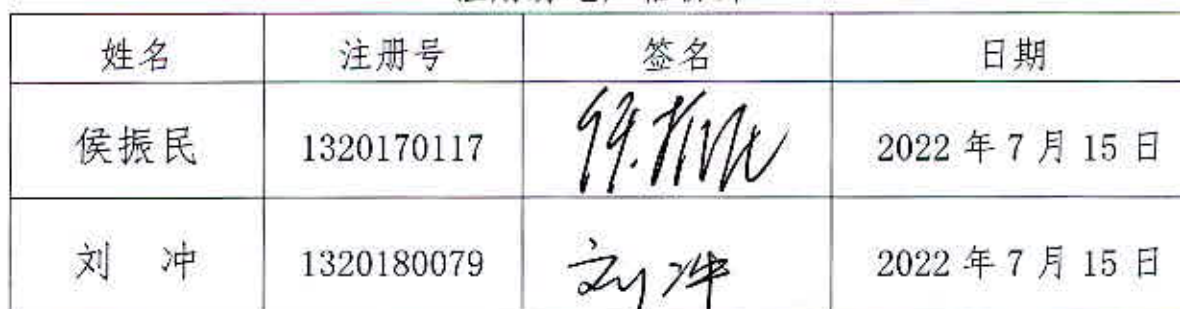 姓名 注册号 签名 日期
侯振民 1320170117 侯振民 2022 年 7 月 15 日
刘 冲 1320180079 刘冲 2022 年 7 月 15 日